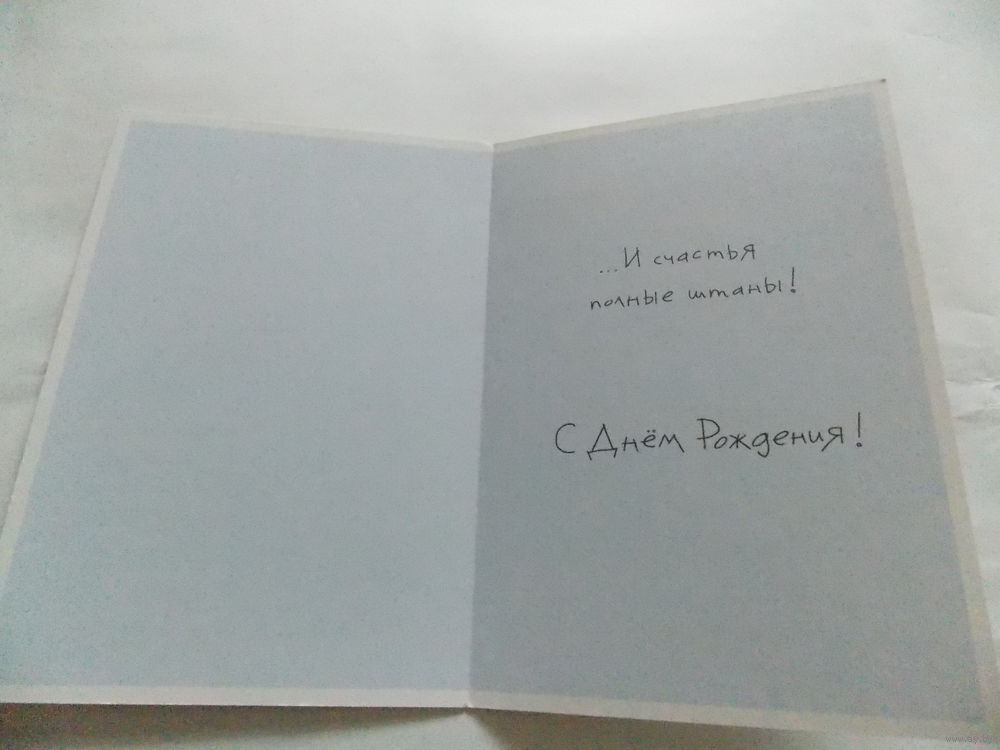 ...И счастья
полные штаны!
С Днём Рождения!